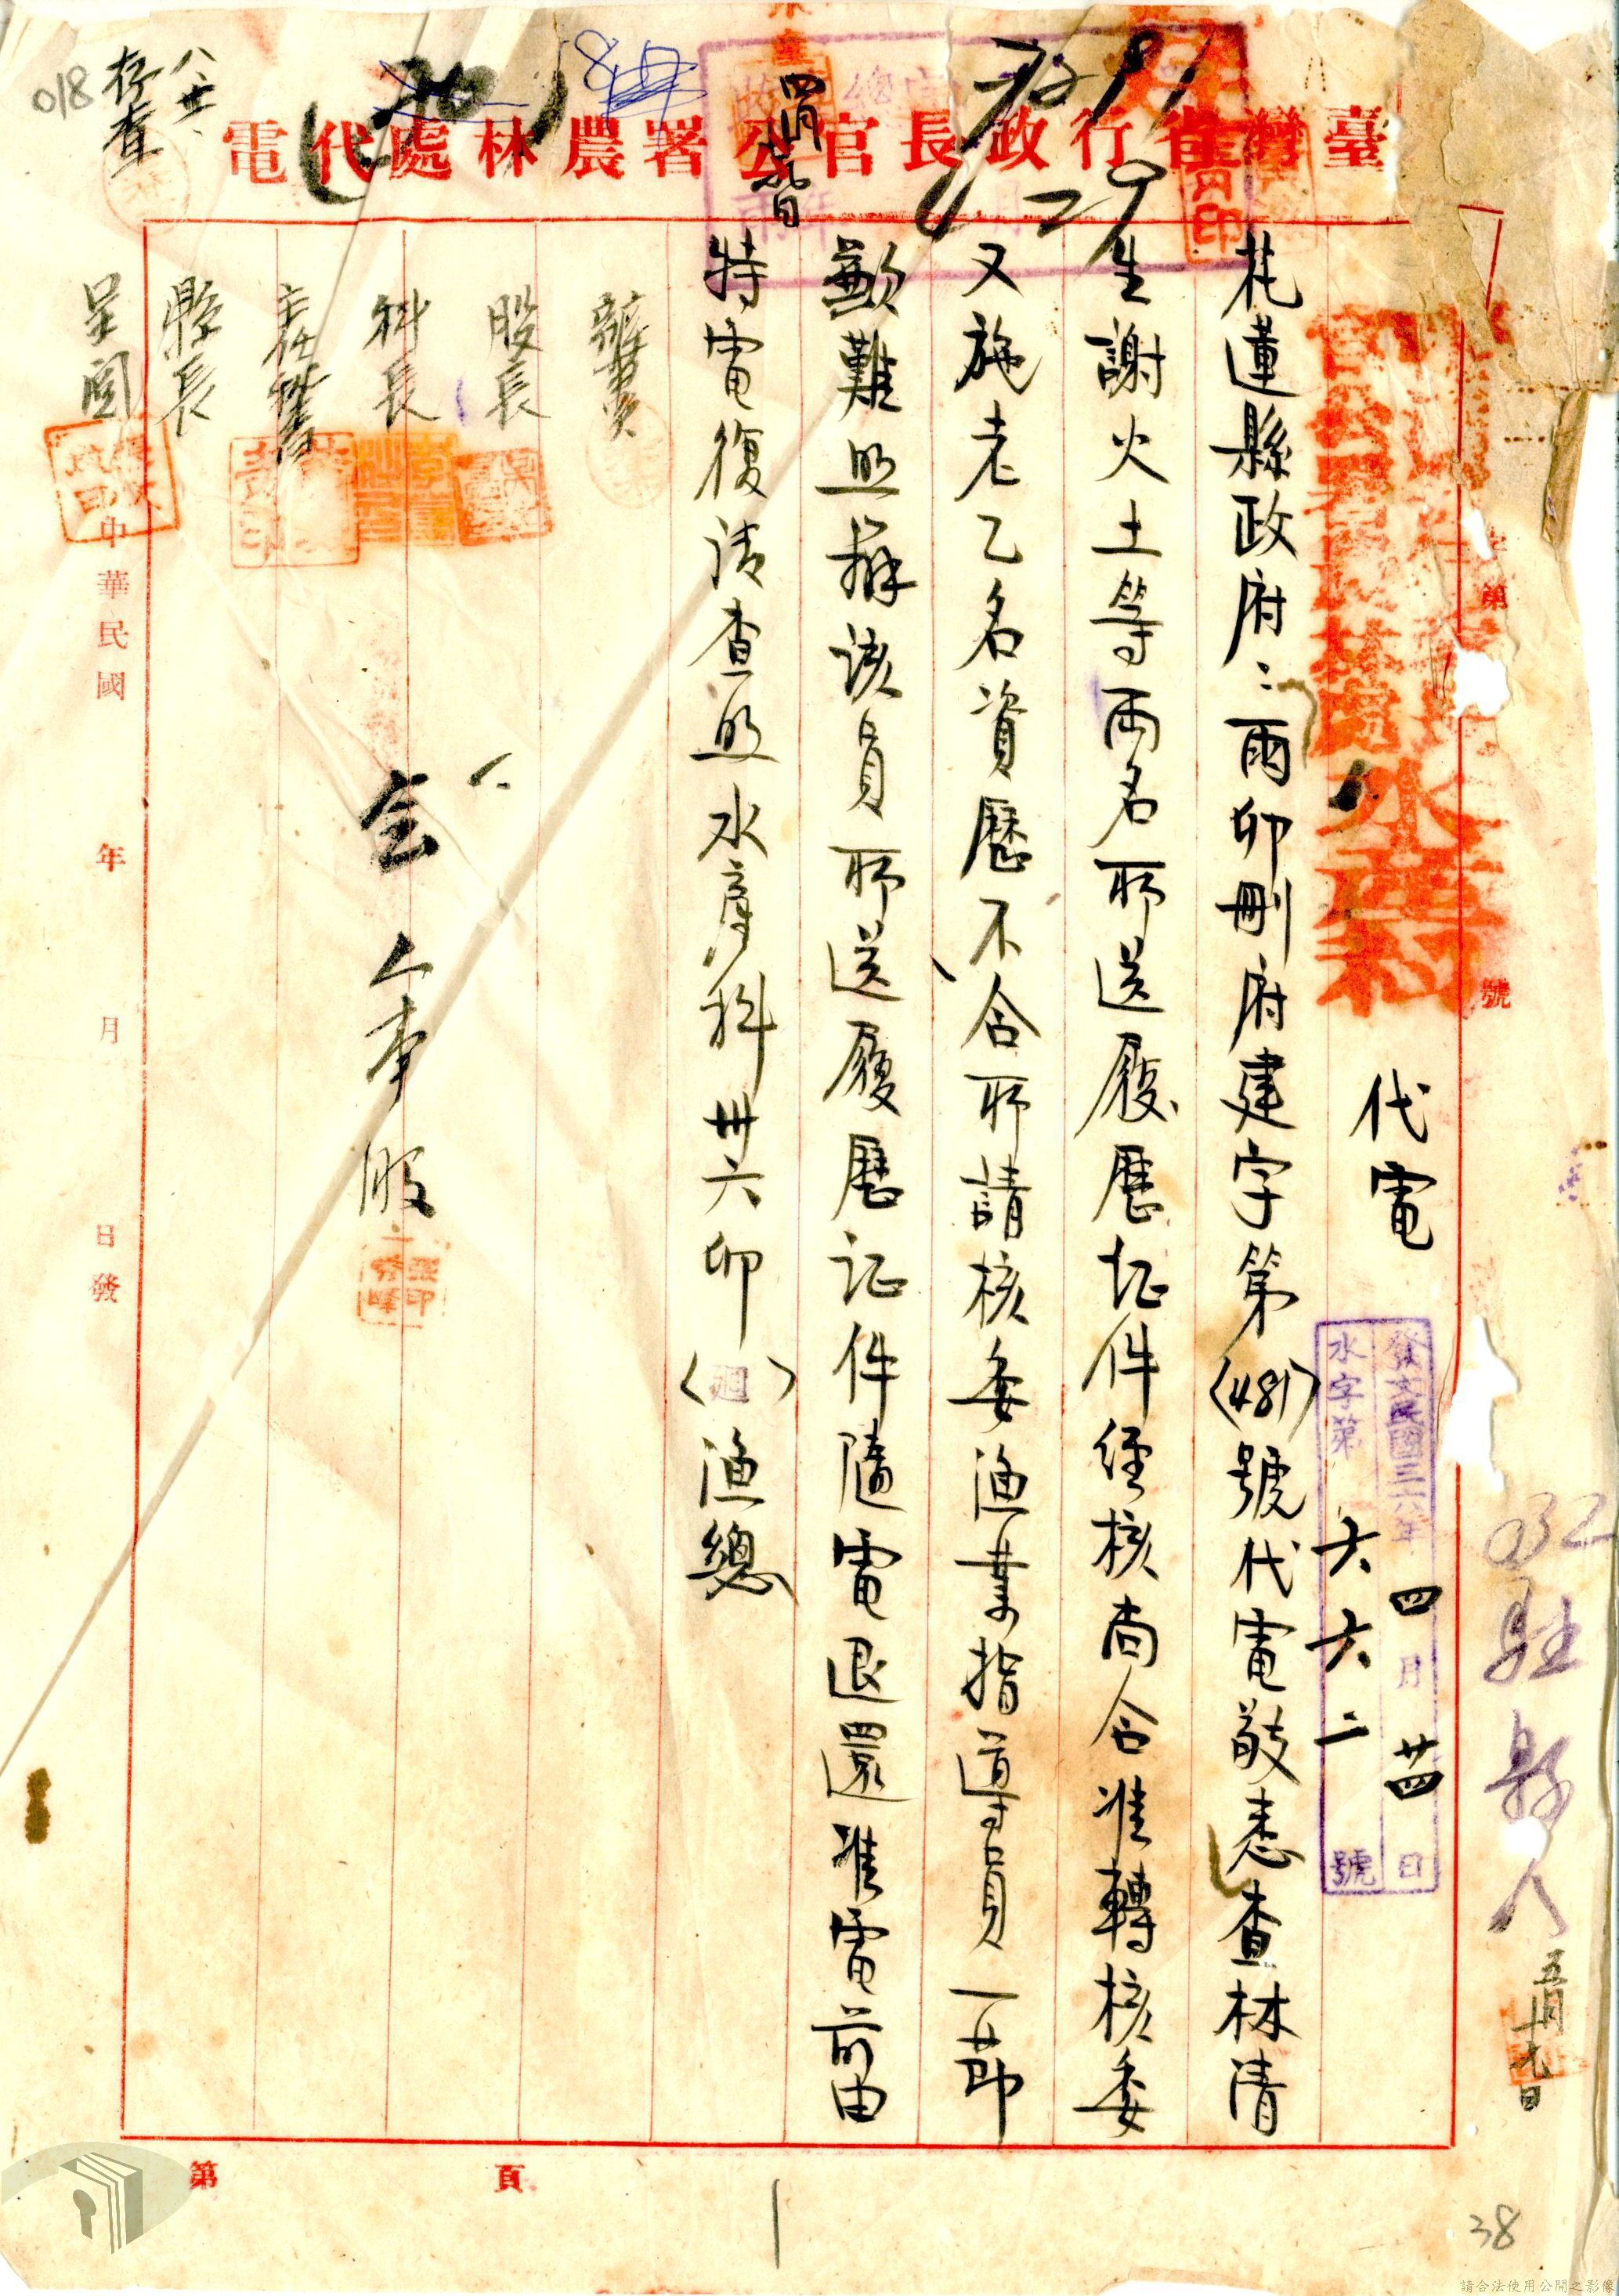 臺灣省行政長官公署農林處代電
字第 號
代電
發文民國三六年四月廿四日
水字第六六二號
花蓮縣政府：兩卯刪府建字第(481)號代電敬悉查林清
生謝火土等兩名所送履歷証件經核尚合准轉核委
又施老乙名資歷不合所請核委漁業指導員一節
歉難照辦該員所送履歷証件隨電退還准電前由
特電復請查照水產科卅六卯(迴)漁總
辦員
股長
科長
主任秘書
縣長
呈閱
會人事股
中華民國 年 月 日發
存查
八廿
018
(20)
4 27
032
駐縣人
五月十九日
第 頁
38
請合法使用公開之影像